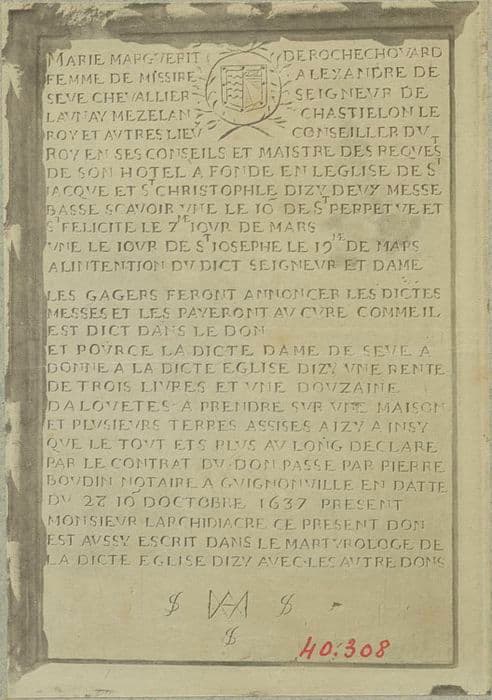 MARIE MARGVERIT DE ROCHECHOVARD
FEMME DE MISSIRE ALEXANDRE DE
SEVE CHEVALLIER SEIGNEVR DE
LAVNAY MEZELAN CHASTIELON LE
ROY ET AVTRES LIEV CONSEILLER DVT
ROY EN SES CONSEILS ET MAISTRE DES REQVES
DE SON HOTEL A FONDE EN LEGLISE DE ST
IACQVE ET ST CHRISTOPHLE DIZY DEVX MESSE
BASSE SCAVOIR VNE LE 10 DE ST PERPETVE ET
ST FELICITE LE 7ME IOVR DE MARS
VNE LE IOVR DE ST IOSEPHE LE 19ME DE MARS
A LINTENTION DV DICT SEIGNEVR ET DAME
LES GAGERS FERONT ANNONCER LES DICTES
MESSES ET LES PAYERONT AV CVRE COMME IL
EST DICT DANS LE DON
ET POVRCE LA DICTE DAME DE SEVE A
DONNE A LA DICTE EGLISE DIZY VNE RENTE
DE TROIS LIVRES ET VNE DOVZAINE
DALOVETES A PRENDRE SVR VNE MAISON
ET PLVSIEVRS TERRES ASSISES A IZY AINSY
QVE LE TOVT ETS PLVS AV LONG DECLARE
PAR LE CONTRAT DV DON PASSE PAR PIERRE
BOVDIN NOTAIRE A GVIGNONVILLE EN DATTE
DV 27 10 DOCTOBRE 1637 PRESENT
MONSIEVR LARCHIDIACRE CE PRESENT DON
EST AVSSY ESCRIT DANS LE MARTVROLOGE DE
LA DICTE EGLISE DIZY AVEC LES AVTRE DONS
40.308